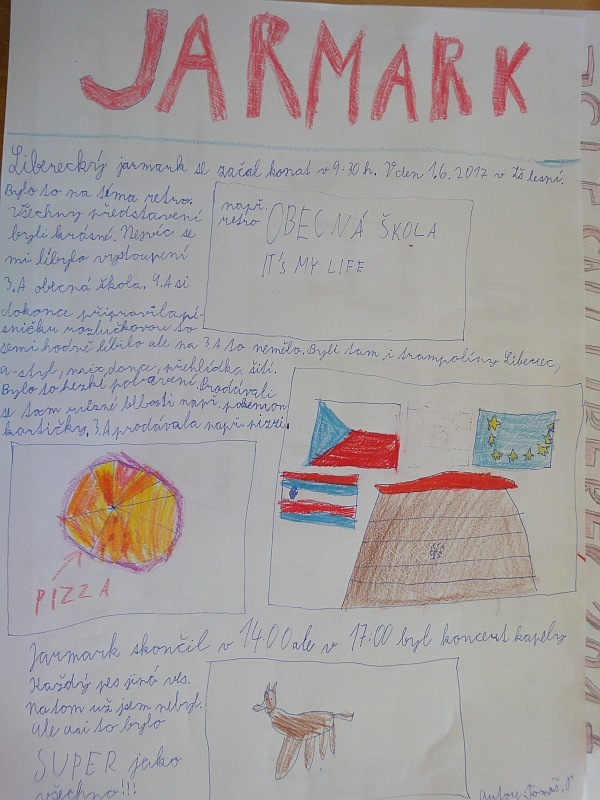 JARMARK
Liberecký jarmark se začal konat v 9:30 h. V den 1.6. 2017 v ZŠ lesní.
Bylo to na téma retro.
všechny představení
byli krásné. Nejvíce se
mi líbylo vystoupení
3.A obecná škola. 9.A si
dokonce připravila pí-
sničku rozlučkovou to
např.
retro
OBECNÁ ŠKOLA
IT's MY LIFE
semi hodně líbilo ale na 3.A to nemělo. Byli tam i trampolíny Liberec,
a-styl, maix dance, přehlídka šití.
Bylo to hezké pobavení. Prodávali
se tam různé blbosti např. pokemon
kartičky. 3.A prodávala např. pizzi.
PIZZA
Jarmark skončil v 14:00 ale v 17:00 byl koncert kapely
Každý pes jiná ves.
Na tom už jsem nebyl.
Ale asi to bylo
SUPER jako
všechno!!!
Autor: Tomáš, P